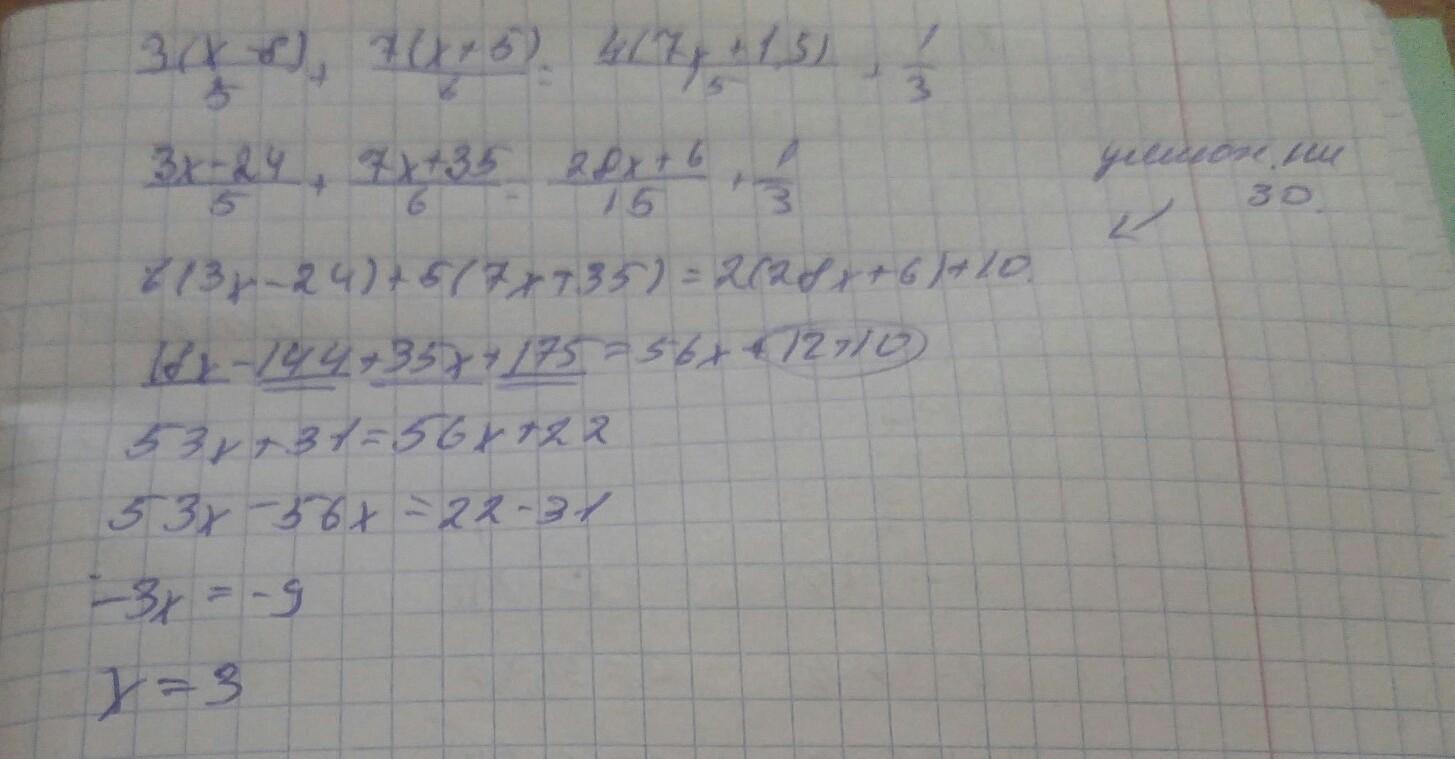 3(x-8)/5 + 7(x+5)/6 = 4(7x+1,5)/15 + 1/3
3x-24/5 + 7x+35/6 = 28x+6/15 + 1/3
умнож. на 30.
6(3x-24)+5(7x+35)=2(28x+6)+10.
18x-144+35x+175=56x+12+10
53x+31=56x+22
53x-56x=22-31
-3x=-9
x=3